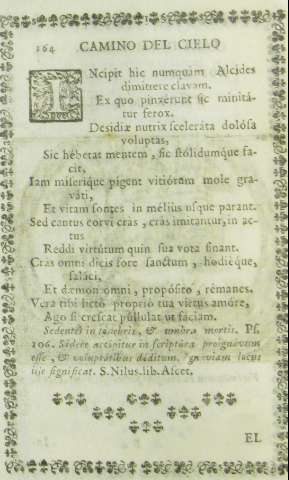 164 CAMINO DEL CIELO
INcipit hic numquam Alcides
dimittere clavam.
Ex quo pinxerunt sic minitá-
tur ferox.
Desidiæ nutrix scelerâta dolósa
voluptas,
Sic hébetat mentem, sic stólidumque fa-
cit,
Iam miserique pigent vitiórum mole gra-
vati,
Et vitam sontes in mélius usque parant.
Sed cantus corvi cras, cras imitantur, in ac-
tus
Reddi virtútum quin sua vota sinant.
Cras omni dicis fore sanctum, hodiéque,
salaci,
Et dæmon omni, propósito, rémanes.
Vera tibi licto proprio tua virtus amóre,
Ago si crescat pullulat ut faciam.
Sedentes in tenebris, & umbra mortis. Ps.
106. Sédere accipitur in scriptura pro
esse, & voluptatibus déditum.
significat. S. Nilus. lib. Ascet.
EL